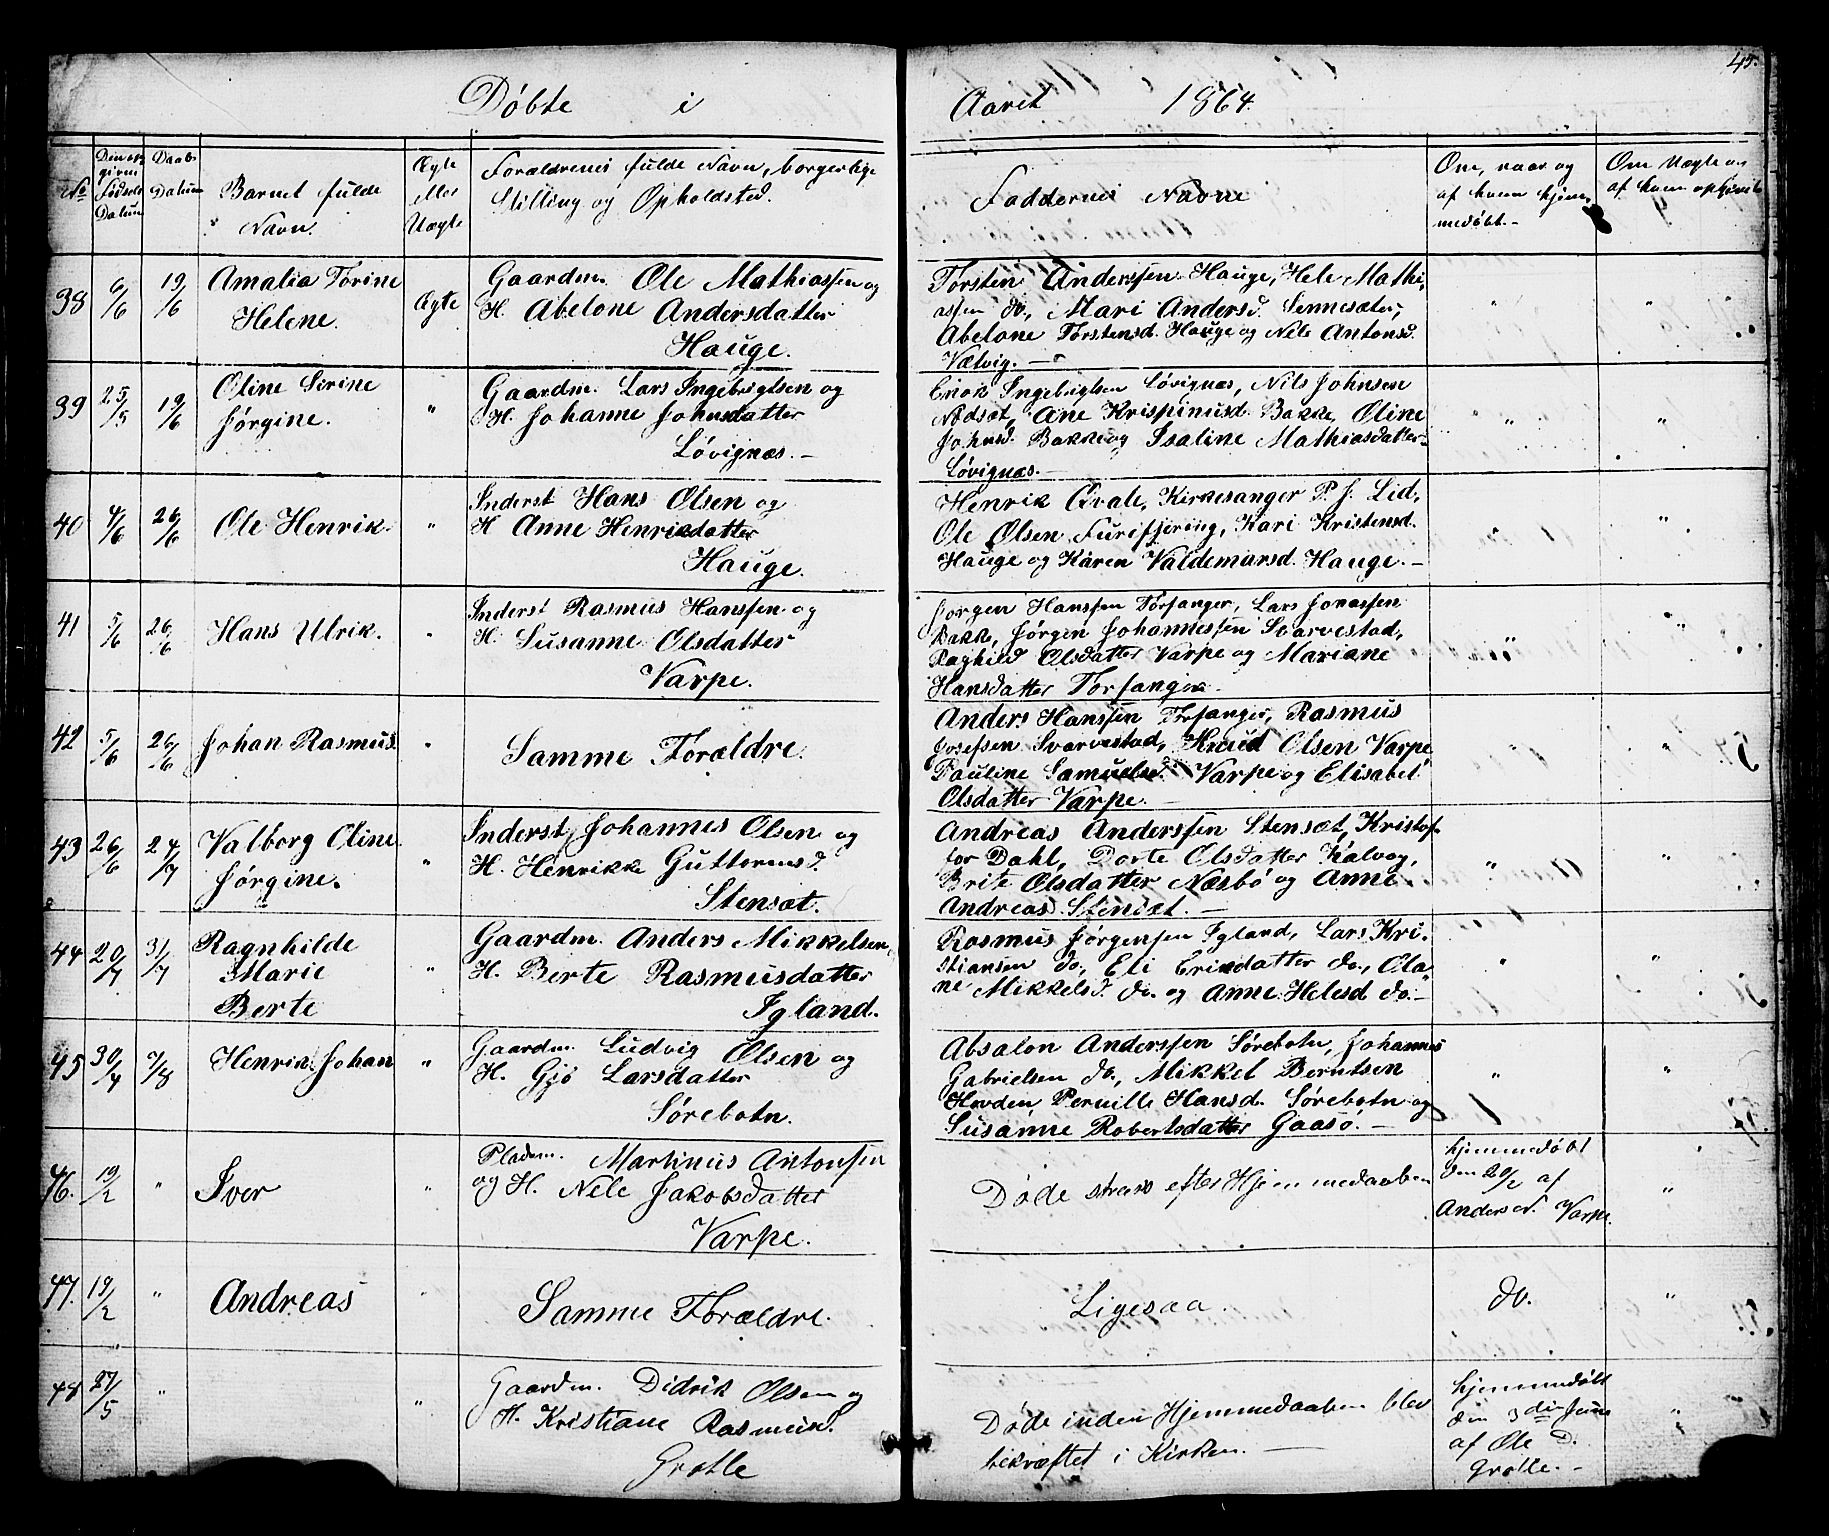 45.
Döbte i Aaret 1864.
No
Den op-
givne
Födsels
Datum
Daabs
Datum
Barnet fulde
Navn.
Ægte
eller
Uægte
Foraldrenes fulde Navn, borgerlige
Stilling og Opholdsted.
Faddernes Navne
Om, naar og
af hvem hjem-
medöbt.-
Om Uægte og
af hvem
38 6/6 19/6
Amalia Torine
Helene.
Ægte
Gaardm. Ole Mathiassen og
H. Abelone Andersdatter
Hauge.
Torsten Anderssen Hauge, Hele Mathi-
assen do, Mari Andersd. Sennesæter,
Abelone Torstensd. Hauge og Nele Antonsd.
Vætvig. —
39 25/5 19/6
Oline Serine
Jørgine.
"
Gaardm. Lars Ingebrigtsen og
H. Johanne Johnsdatter
Lövignæs. –
Enok Ingebrigtsen Lövignæs, Nils Johnsen
Nödsæt, Ane Krispinusd. Bakke, Oline
Johnsd. Bakke og Isaline Mathiasdatter
Lövignæs. —
40 4/6 26/6
Ole Henrik.
"
Inderst Hans Olsen og
H Anne Henriksdatter
Hauge.
Henrik Qvale, Kirkesanger P. J. Lid,
Ole Olsen Furifjering, Kari Kristensd.
Hauge og Karen Valdemarsd. Hauge. –
41 5/6 26/6
Hans Ulrik.
"
Inderst Rasmus Hanssen og
H. Susanne Olsdatter
Varpe.
Jørgen Hanssen Torfanger, Lars Jonassen
Bakke, Jørgen Johannessen Svarvestad,
Raghild Olsdatter Varpe og Mariane
Hansdatter Torfanger.
42 5/6 26/6
Johan Rasmus.
"
Samme Forældre.
Anders Hanssen Torfanger, Rasmus
Josefsen Svarvestad, Knud Olsen Varpe
Pauline Samuelsd. Varpe og Elisabet
Olsdatter Varpe. —
43 26/6 24/7
Valborg Oline
Jørgine.
"
Inderst Johannes Olsen og
H. Henrikke Guttormsd.
Stensæt.
Andreas Anderssen Stensæt, Kristof-
for Dahl, Dorte Olsdatter Kalvog,
Brite Olsdatter Næsbö og Anne
Andreasd. Stensæt. —
44 20/7 31/7
Ragnhilde
Marie
Berte
"
Gaardm. Anders Mikkelsen,
H. Berte Rasmusdatter
Igland.
Rasmus Jörgensen Igland, Lars Kri-
stiansen do, Eli Eriksdatter do., Ola-
ne Mikkelsd. do. og Anne Helesd do. –
45 30/7 7/8
Henrik Johan
"
Gaardm. Ludvig Olsen og
H. Gjö Larsdatter
Sörebotn.
Absalon Anderssen Sörebotn, Johannes
Gabrielsen do., Mikkel Berntsen
Hovden Pernille Hansd. Sörebotn og
Susanne Robertsdatter Gaasö. –
46. 19/2 "
Iver
"
Pladsm. Martinus Antonsen
og H. Nele Jakobsdatter
Varpe.
Döde strax efter Hjemmedaaben
hjemmedöbt
den 20/2 af
Anders N. Varpe.
47. 19/2 "
Andreas
"
Samme Forældre.
Ligesaa.
do.
48 27/5 "
"
Gaardm. Didrik Olsen og
H. Kristiane Rasmusd.
Grotle
Döde inden Hjemmedaaben blev
bekræftet i Kirken. —
hjemmedöbt
den 3die Juni
af Ole D.
Grotle. –